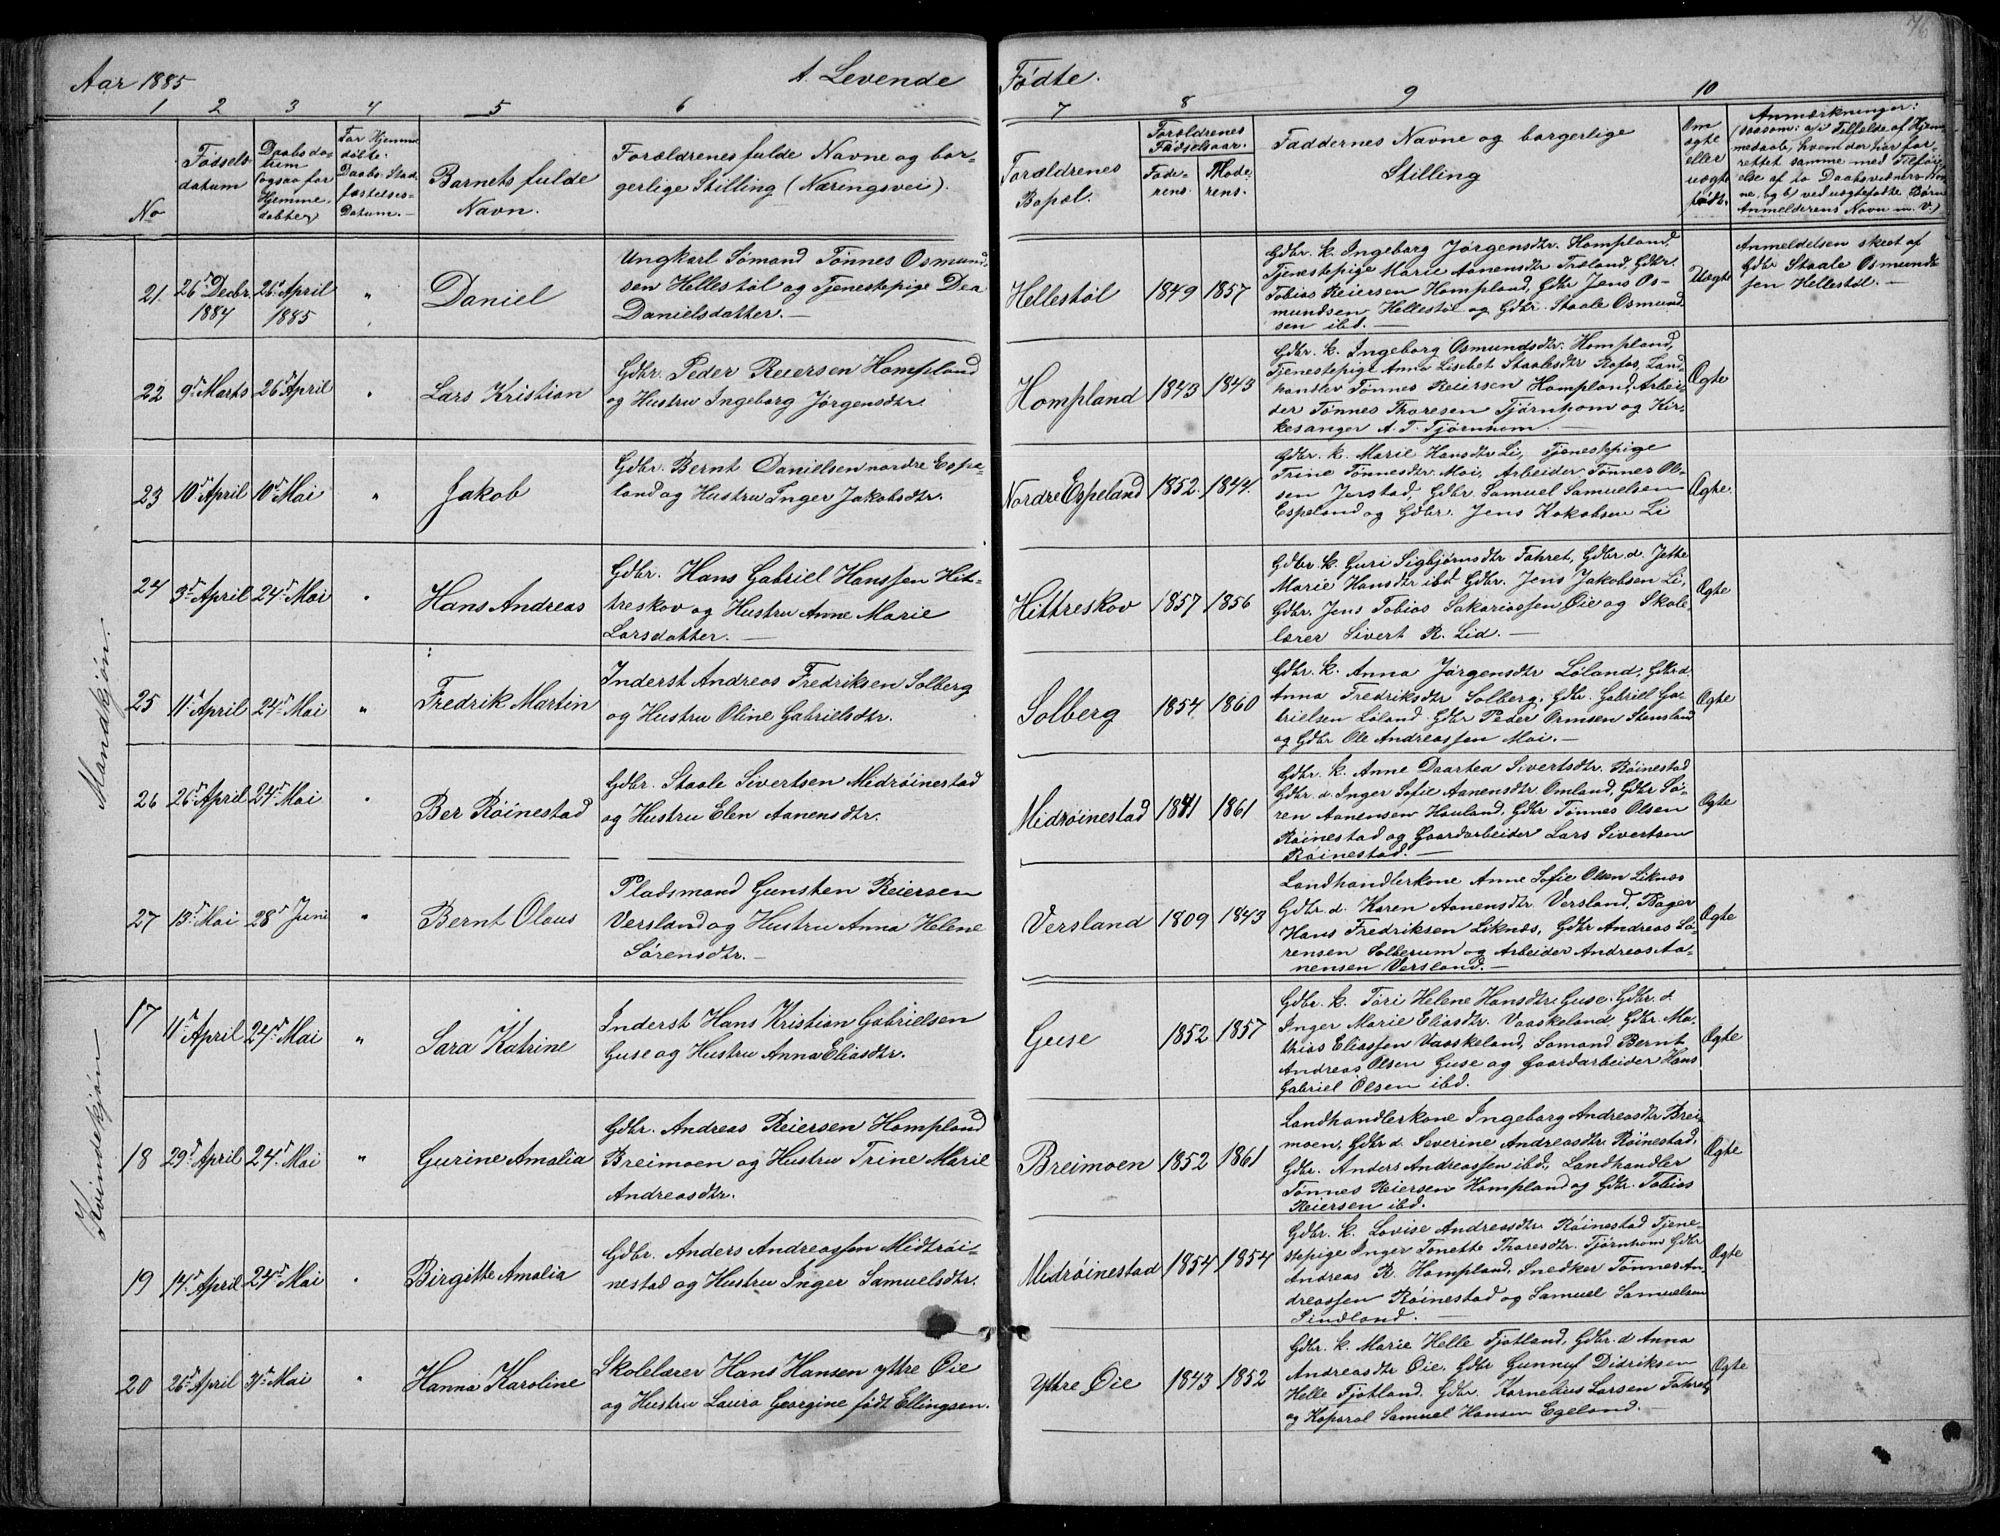 76
Aar 1885
A. Levende Fødte.
1 2 3 4 5 6 7 8 9 10
No
Fødsels
datum
Daabsda-
tum
(ogsaa for
Hjemme-
døbte)
For Hjemme
døbte.
Daabs-Stad
fæstelses-
Datum.
Barnets fulde
Navn.
Forældrenes fulde Navne og bor-
gerlige Stilling (Næringsvei).
Forældrenes
Bopæl.
Forældrenes
Fødselsaar.
Fade-
rens.
Mode-
rens.
Faddernes Navne og borgerlige
Stilling
Om
ægte
eller
uægte
født.
Anmærkninger:
(saasom: a, i Tilfælde af Hjem-
medaab, hvem der har for-
rettet samme med Tilføi-
else af to Daabsvidners Nav-
ne, og b) ved uægtefødte Børn
Anmelderens Navn m. V.)
Mandkjøn.
21 26de Decbr. 1884 26de April 1885 " Daniel
Ungkarl Sømand Tønnes Osmund-
sen Hellestøl og Tjenestepige Dea
Danielsdatter.—
Hellestøl 1849 1857
Gdbr. k. Ingeborg Jørgensdtr. Hompland,
Tjenestepige Marie Aanensdtr. Træland, Gdbr.
Tobias Reiersen Hompland, Gdbr Jens Os-
mundsen Hellestøl og Gdbr. Staale Osmund
sen ibd.—
Uægte
Anmeldelsen skeet af
Gdbr Staale Osmund
sen Hellestøl.—
22 9de Marts 26de April " Lars Kristian
Gdbr. Peder Reiersen Hompland
og Hustru Ingeborg Jørgensdtr.
Hompland 1843 1843
Gdbr. k. Ingeborg Osmundsdtr. Hompland,
Tjenestepige Anna Lisebet Staalesdtr Rafos, Land-
handler Tønnes Reiersen Hompland, Arbei-
der Tønnes Thoresen Tjørnhom og Kir-
kesanger A. T. Tjørnhom.—
Ægte
23 10de April 10de Mai " Jakob
Gdbr. Bernt Danielsen nordre Espe-
land og Hustru Inger Jakobsdtr.
Nordre Espeland 1852. 1844.
Gdbr. k. Marie Hansdtr Li, Tjenestepige
Trine Tønnesdtr. Moi, Arbeider Tønnes Ol-
sen Jerstad, Gdbr. Samuel Samuelsen
Espeland og Gdbr. Jens Kakobsen Li
Ægte.
24 3de April 24de Mai " Hans Andreas
Gdbr. Hans Gabriel Hanssen Hit-
treskov og Hustru Anne Marie
Larsdatter.—
Hittreskov 1857 1856
Gdbr. k. Guri Sigbjørnsdtr Fahret, Gdbr. d. Jethe
Marie Hansdtr ibd Gdbr. Jens Jakobsen Li,
Gdbr. Jens Tobias Sakariassen Øie og Skole
lærer Sivert R. Lid.—
Ægte
25 11te April 24de Mai " Fredrik Martin
Inderst Andreas Fredriksen Solberg
og Hustru Oline Gabrielsdtr.
Solberg 1854. 1860
Gdbr. k. Anna Jørgensdtr Løland, Gdbr d.
Anna Fredriksdtr Solberg, Gdbr. Gabriel Ga-
brielsen Løland Gdbr Peder Ormsen Stensland
og Gdbr Ole Andreassen Moi.—
Ægte
26 26de April 24de Mai " Ber Røinestad
Gdbr. Staale Sivertsen Midrøinestad
og Hustru Elen Aanensdtr.
Midrøinestad 1841 1861
Gdbr. k. Anne Daartea Sivertsdtr. Røinestad
Gdbr. d. Inger Sofie Aanensdtr. Omland, Gdbr Sø-
ren Aanensen Houland, Gdbr Tønnes Olsen
Røinestad og Gaardarbeider Lars Sivertsen
Røinestad.—
Ægte
27 13de Mai 28de Juni " Bernt Olaus
Pladsmand Gunsten Reiersen
Versland og Hustru Anna Helene
Sørensdtr.—
Versland 1809 1843
Landhandlerkone Anne Sofie Olsen Liknes
Gdbr. d. Karen Aanensdtr. Versland, Bager
Hans Fredriksen Liknes, Gdbr Andreas Sø-
rensen Solberum og Arbeider Andreas Aa-
nensen Versland.—
Ægte
Kvindekjøn
17 11te April 24de Mai " Sara Katrine
Inderst Hans Kristian Gabrielsen
Guse og Hustru Anna Eliasdtr.
Guse 1852 1857
Gdbr. k. Tori Helene Hansdtr Guse. Gdbr. d.
Inger Marie Eliasdtr. Vaaskeland, Gdbr. Ma-
thias Eliassen Vaaskeland, Sømand Bernt
Andreas Olsen Guse og Gaardarbeider Hans
Gabriel Olsen ibd.
Ægte
18 29de April 24de Mai " Gurine Amalia
Gdbr. Andreas Reiersen Hompland
Breimoen og Hustru Trine Marie
Andreasdtr.
Breimoen 1852 1861
Landhandlerkone Ingeborg Andreasdtr Brei-
moen, Gdbr d. Severine Andreasdtr. Røinestad,
Gdbr. Anders Andreassen ibd., Landhandler
Tønnes Reiersen Hompland og Gdbr. Tobias
Reiersen ibd.
Ægte
19 14de April 24de Mai " Birgitte Amalia
Gdbr. Anders Andreassen Midtrøi-
nestad og Hustru Inger Samuelsdtr.
Midrøinestad 1854 1854
Gdbr. k. Lovise Andreasdtr. Røinestad Tjene-
stepige Inger Tonette Thoresdtr. Tjørnhom Gdbr
Andreas R. Hompland. Snedker Tønnes An-
dreassen Røinestad og Samuel Samuelsen
Sindland.—
Ægte
20 26de April 31te Mai " Hanna Karoline
Skolelærer Hans Hansen ytre Øie
og Hustru Laura Georgine født Ellingsen.
Ytre Øie 1843 1852
Gdbr. k. Marie Helle Fjotland, Gdbr. d Anna
Andreasdtr Øie. Gdbr Gunnuf Didriksen
Helle Fjotland. Gdbr. Kornelius Larsen Fahret,
og Koporal Samuel Hansen Egeland.—
Ægte